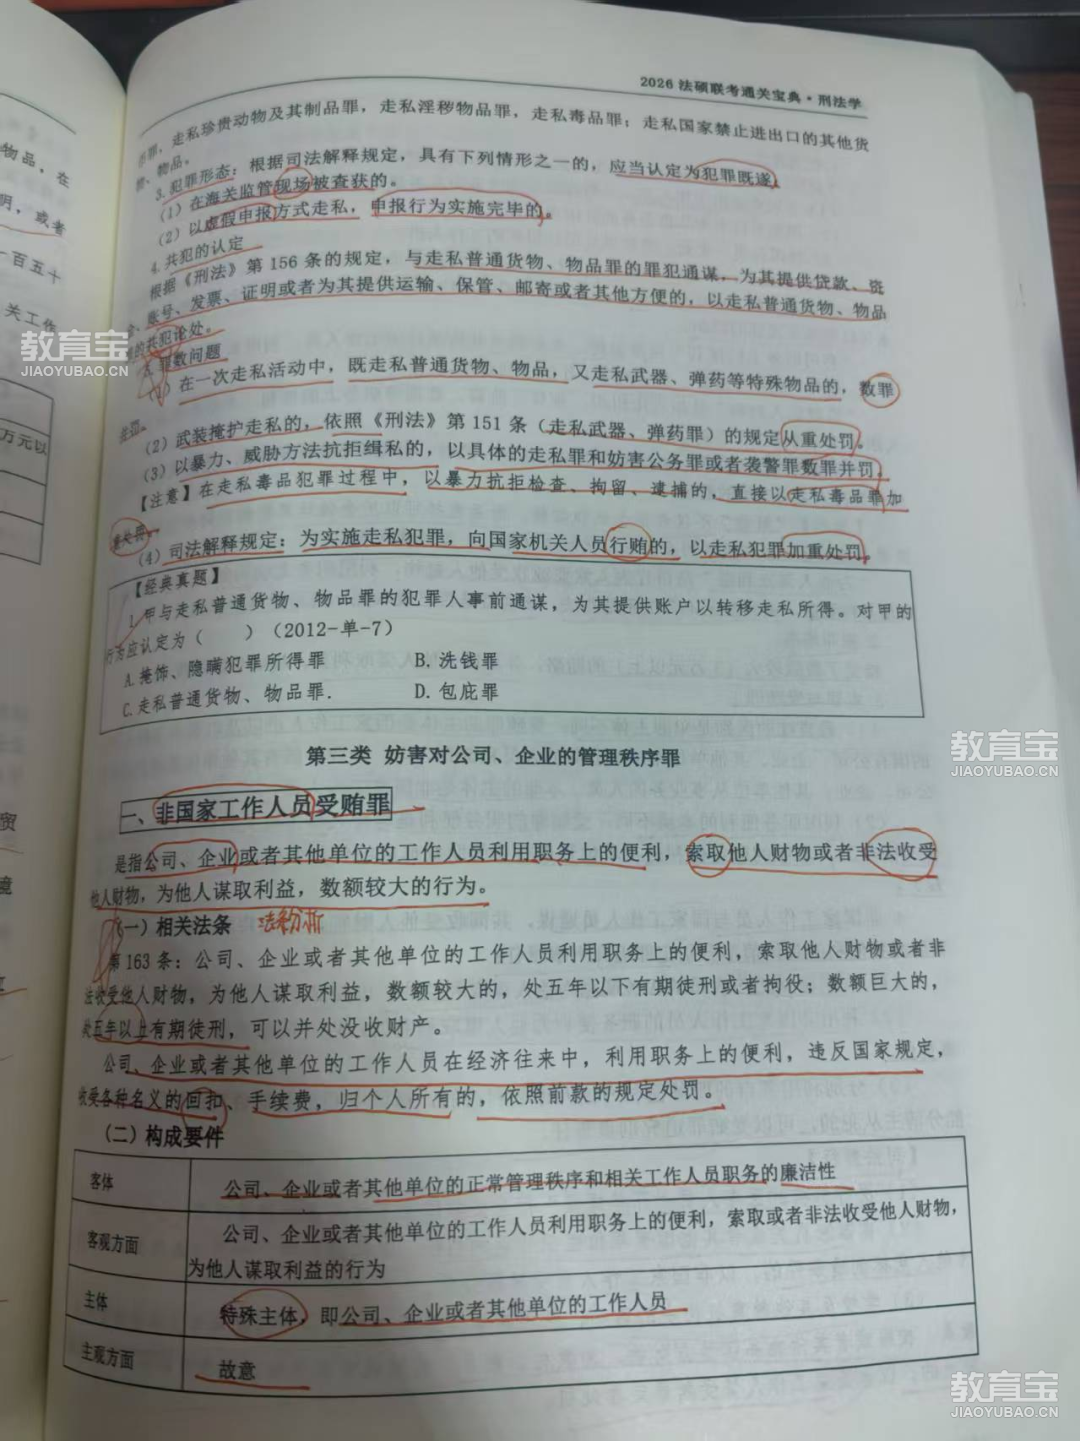 2026 法硕联考通关宝典·刑法学
罪，走私珍贵动物及其制品罪，走私淫秽物品罪，走私毒品罪；走私国家禁止进出口的其他货
物、物品。
3. 犯罪形态：根据司法解释规定，具有下列情形之一的，应当认定为犯罪既遂。
(1) 在海关监管现场被查获的。
(2) 以虚假申报方式走私，申报行为实施完毕的。
4. 共犯的认定
根据《刑法》第 156 条的规定，与走私普通货物、物品罪的罪犯通谀，为其提供贷款、资
金、账号、发票、证明或者为其提供运输、保管、邮寄或者其他方便的，以走私普通货物、物品
罪的共犯论处。
5. 罪数问题
(1) 在一次走私活动中，既走私普通货物、物品，又走私武器、弹药等特殊物品的，数罪
并罚。
(2) 武装掩护走私的，依照《刑法》第 151 条（走私武器、弹药罪）的规定从重处罚。
(3) 以暴力、威胁方法抗拒缉私的，以具体的走私罪和妨害公务罪或者袭警罪数罪并罚。
【注意】在走私毒品犯罪过程中，以暴力抗拒检查、拘留、逮捕的，直接以走私毒品罪加
重处罚。
(4) 司法解释规定：为实施走私犯罪，向国家机关人员行贿的，以走私犯罪加重处罚。
【经典真题】
1. 甲与走私普通货物、物品罪的犯罪人事前通谋，为其提供账户以转移走私所得。对甲的
行为应认定为（ ）（2012-单-7）
A. 掩饰、隐瞒犯罪所得罪 B. 洗钱罪
C. 走私普通货物、物品罪. D. 包庇罪
第三类 妨害对公司、企业的管理秩序罪
一、非国家工作人员受贿罪
是指公司、企业或者其他单位的工作人员利用职务上的便利，索取他人财物或者非法收受
他人财物，为他人谋取利益，数额较大的行为。
(一) 相关法条 法条分析
第 163 条：公司、企业或者其他单位的工作人员利用职务上的便利，索取他人财物或者非
法收受他人财物，为他人谋取利益，数额较大的，处五年以下有期徒刑或者拘役；数额巨大的，
处五年以上有期徒刑，可以并处没收财产。
公司、企业或者其他单位的工作人员在经济往来中，利用职务上的便利，违反国家规定，
收受各种名义的回扣、手续费，归个人所有的，依照前款的规定处罚。
(二) 构成要件
客体 公司、企业或者其他单位的正常管理秩序和相关工作人员职务的廉洁性
客观方面 公司、企业或者其他单位的工作人员利用职务上的便利，索取或者非法收受他人财物，
为他人谋取利益的行为
主体 特殊主体，即公司、企业或者其他单位的工作人员
主观方面 故意
物品，在
明，或者
一百五十
关工作
万元以
贸
境
教育宝
JIAOYUBAO.CN
教育宝
JIAOYUBAO.CN
教育宝
JIAOYUBAO.CN